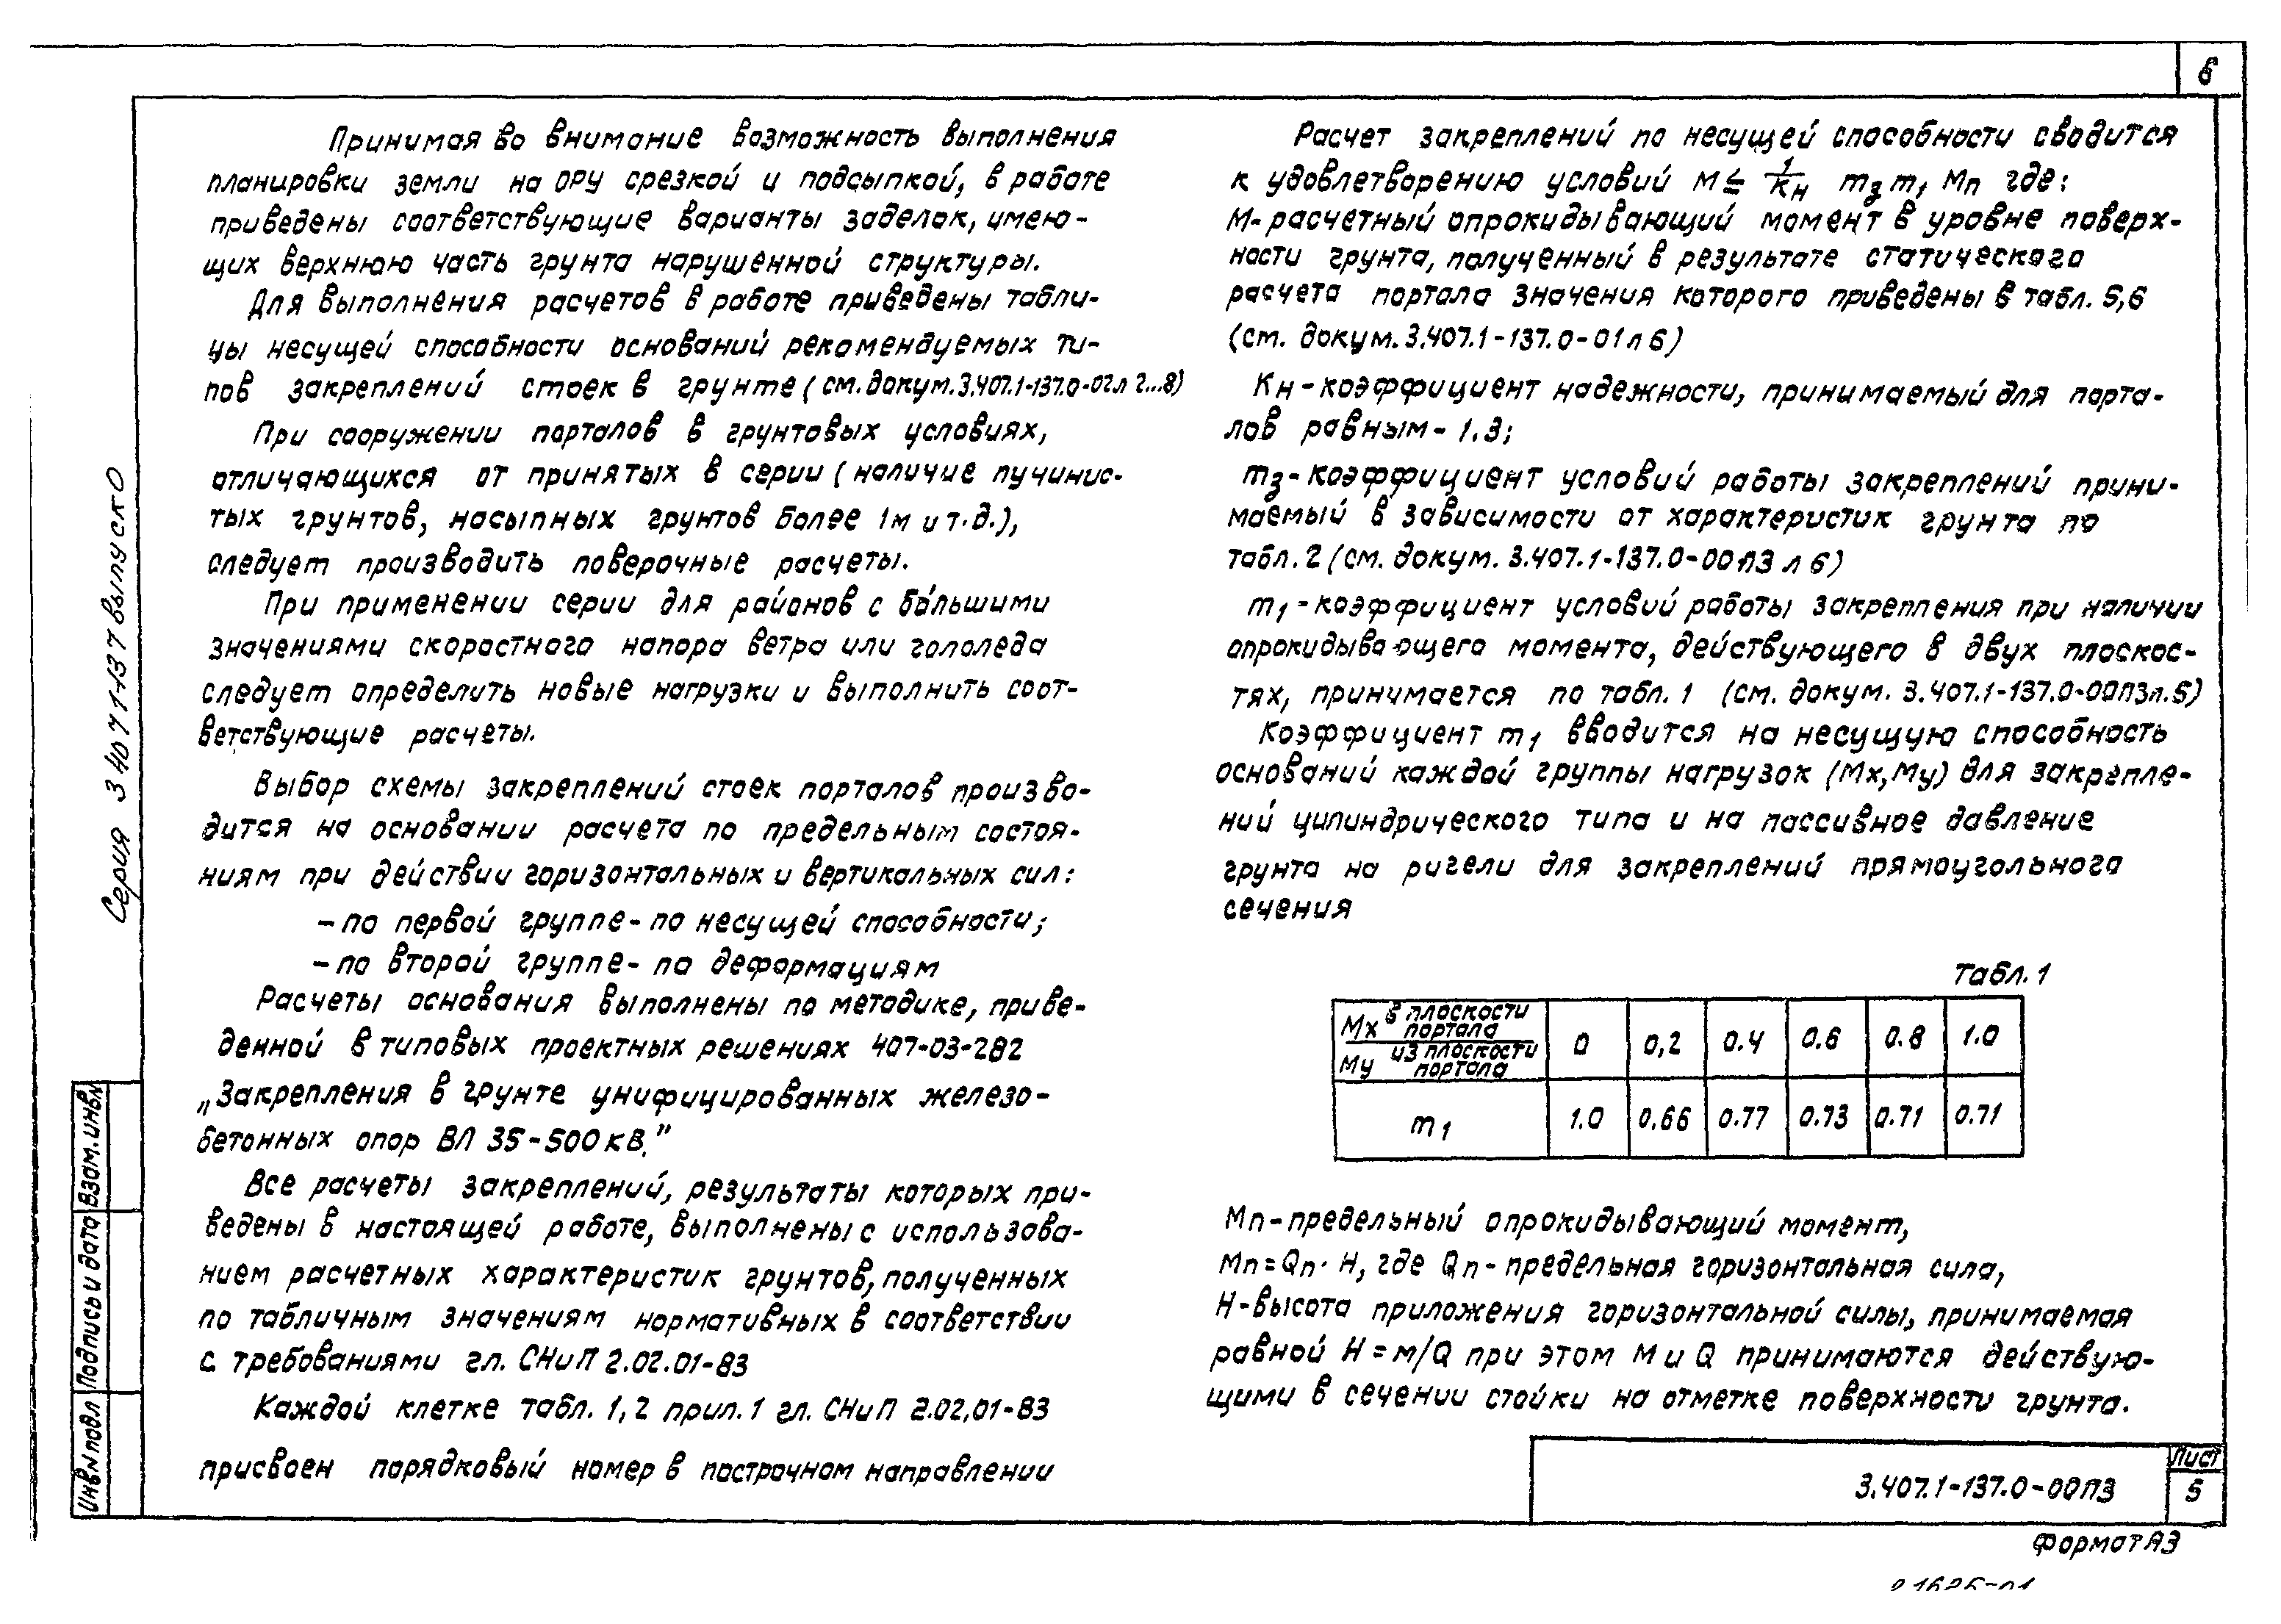 6
Принимая во внимание возможность выполнения
планировки земли на ОРУ срезкой и подсыпкой, в работе
приведены соответствующие варианты заделок, имею-
щих верхнюю часть грунта нарушенной структуры.
Для выполнения расчетов в работе приведены табли-
цы несущей способности оснований рекомендуемых ти-
пов закреплений стоек в грунте (см. докум. 3.407.1-137.0-02л 2...8)
При сооружении порталов в грунтовых условиях,
отличающихся от принятых в серии (наличие пучинис-
тых грунтов, насыпных грунтов более 1м и т.д.),
следует производить поверочные расчеты.
При применении серии для районов с бо́льшими
значениями скоростного напора ветра или гололеда
следует определить новые нагрузки и выполнить соот-
ветствующие расчеты.
Выбор схемы закреплений стоек порталов произво-
дится на основании расчета по предельным состоя-
ниям при действии горизонтальных и вертикальных сил:
- по первой группе - по несущей способности;
- по второй группе - по деформациям
Расчеты основания выполнены по методике, приве-
денной в типовых проектных решениях 407-03-282
„Закрепления в грунте унифицированных железо-
бетонных опор ВЛ 35-500 кВ."
Все расчеты закреплений, результаты которых при-
ведены в настоящей работе, выполнены с использова-
нием расчетных характеристик грунтов, полученных
по табличным значениям нормативных в соответствии
с требованиями гл. СНиП 2.02.01-83
Каждой клетке табл. 1, 2 прил. 1 гл. СНиП 2.02.01-83
присвоен порядковый номер в построчном направлении
Расчет закреплений по несущей способности сводится
к удовлетворению условий М ≤ 1/Кн mз m1 Мп где:
М - расчетный опрокидывающий момент в уровне поверх-
ности грунта, полученный в результате статического
расчета портала значения которого приведены в табл. 5,6
(см. докум. 3.407.1-137.0-01 л 6)
Кн - коэффициент надежности, принимаемый для порта-
лов равным - 1.3;
mз - коэффициент условий работы закреплений прини-
маемый в зависимости от характеристик грунта по
табл. 2 (см. докум. 3.407.1-137.0-00ПЗ л 6)
m1 - коэффициент условий работы закрепления при наличии
опрокидывающего момента, действующего в двух плоскос-
тях, принимается по табл. 1 (см. докум. 3.407.1-137.0-00ПЗ л. 5)
Коэффициент m1 вводится на несущую способность
оснований каждой группы нагрузок (Мх, Му) для закрепле-
ний цилиндрического типа и на пассивное давление
грунта на ригели для закреплений прямоугольного
сечения
Табл. 1
Мх в плоскости портала / Му из плоскости портала 0 0,2 0.4 0.6 0.8 1.0
m1 1.0 0.66 0.77 0.73 0.71 0.71
Мп - предельный опрокидывающий момент,
Мп = Qп · Н, где Qп - предельная горизонтальная сила,
Н - высота приложения горизонтальной силы, принимаемая
равной Н = м/Q при этом М и Q принимаются действую-
щими в сечении стойки на отметке поверхности грунта.
Серия 3.407.1-137 выпуск 0
Инв N подл Подпись и дата Взам. инв N
3.407.1-137.0-00ПЗ
Лист
5
Формат А3